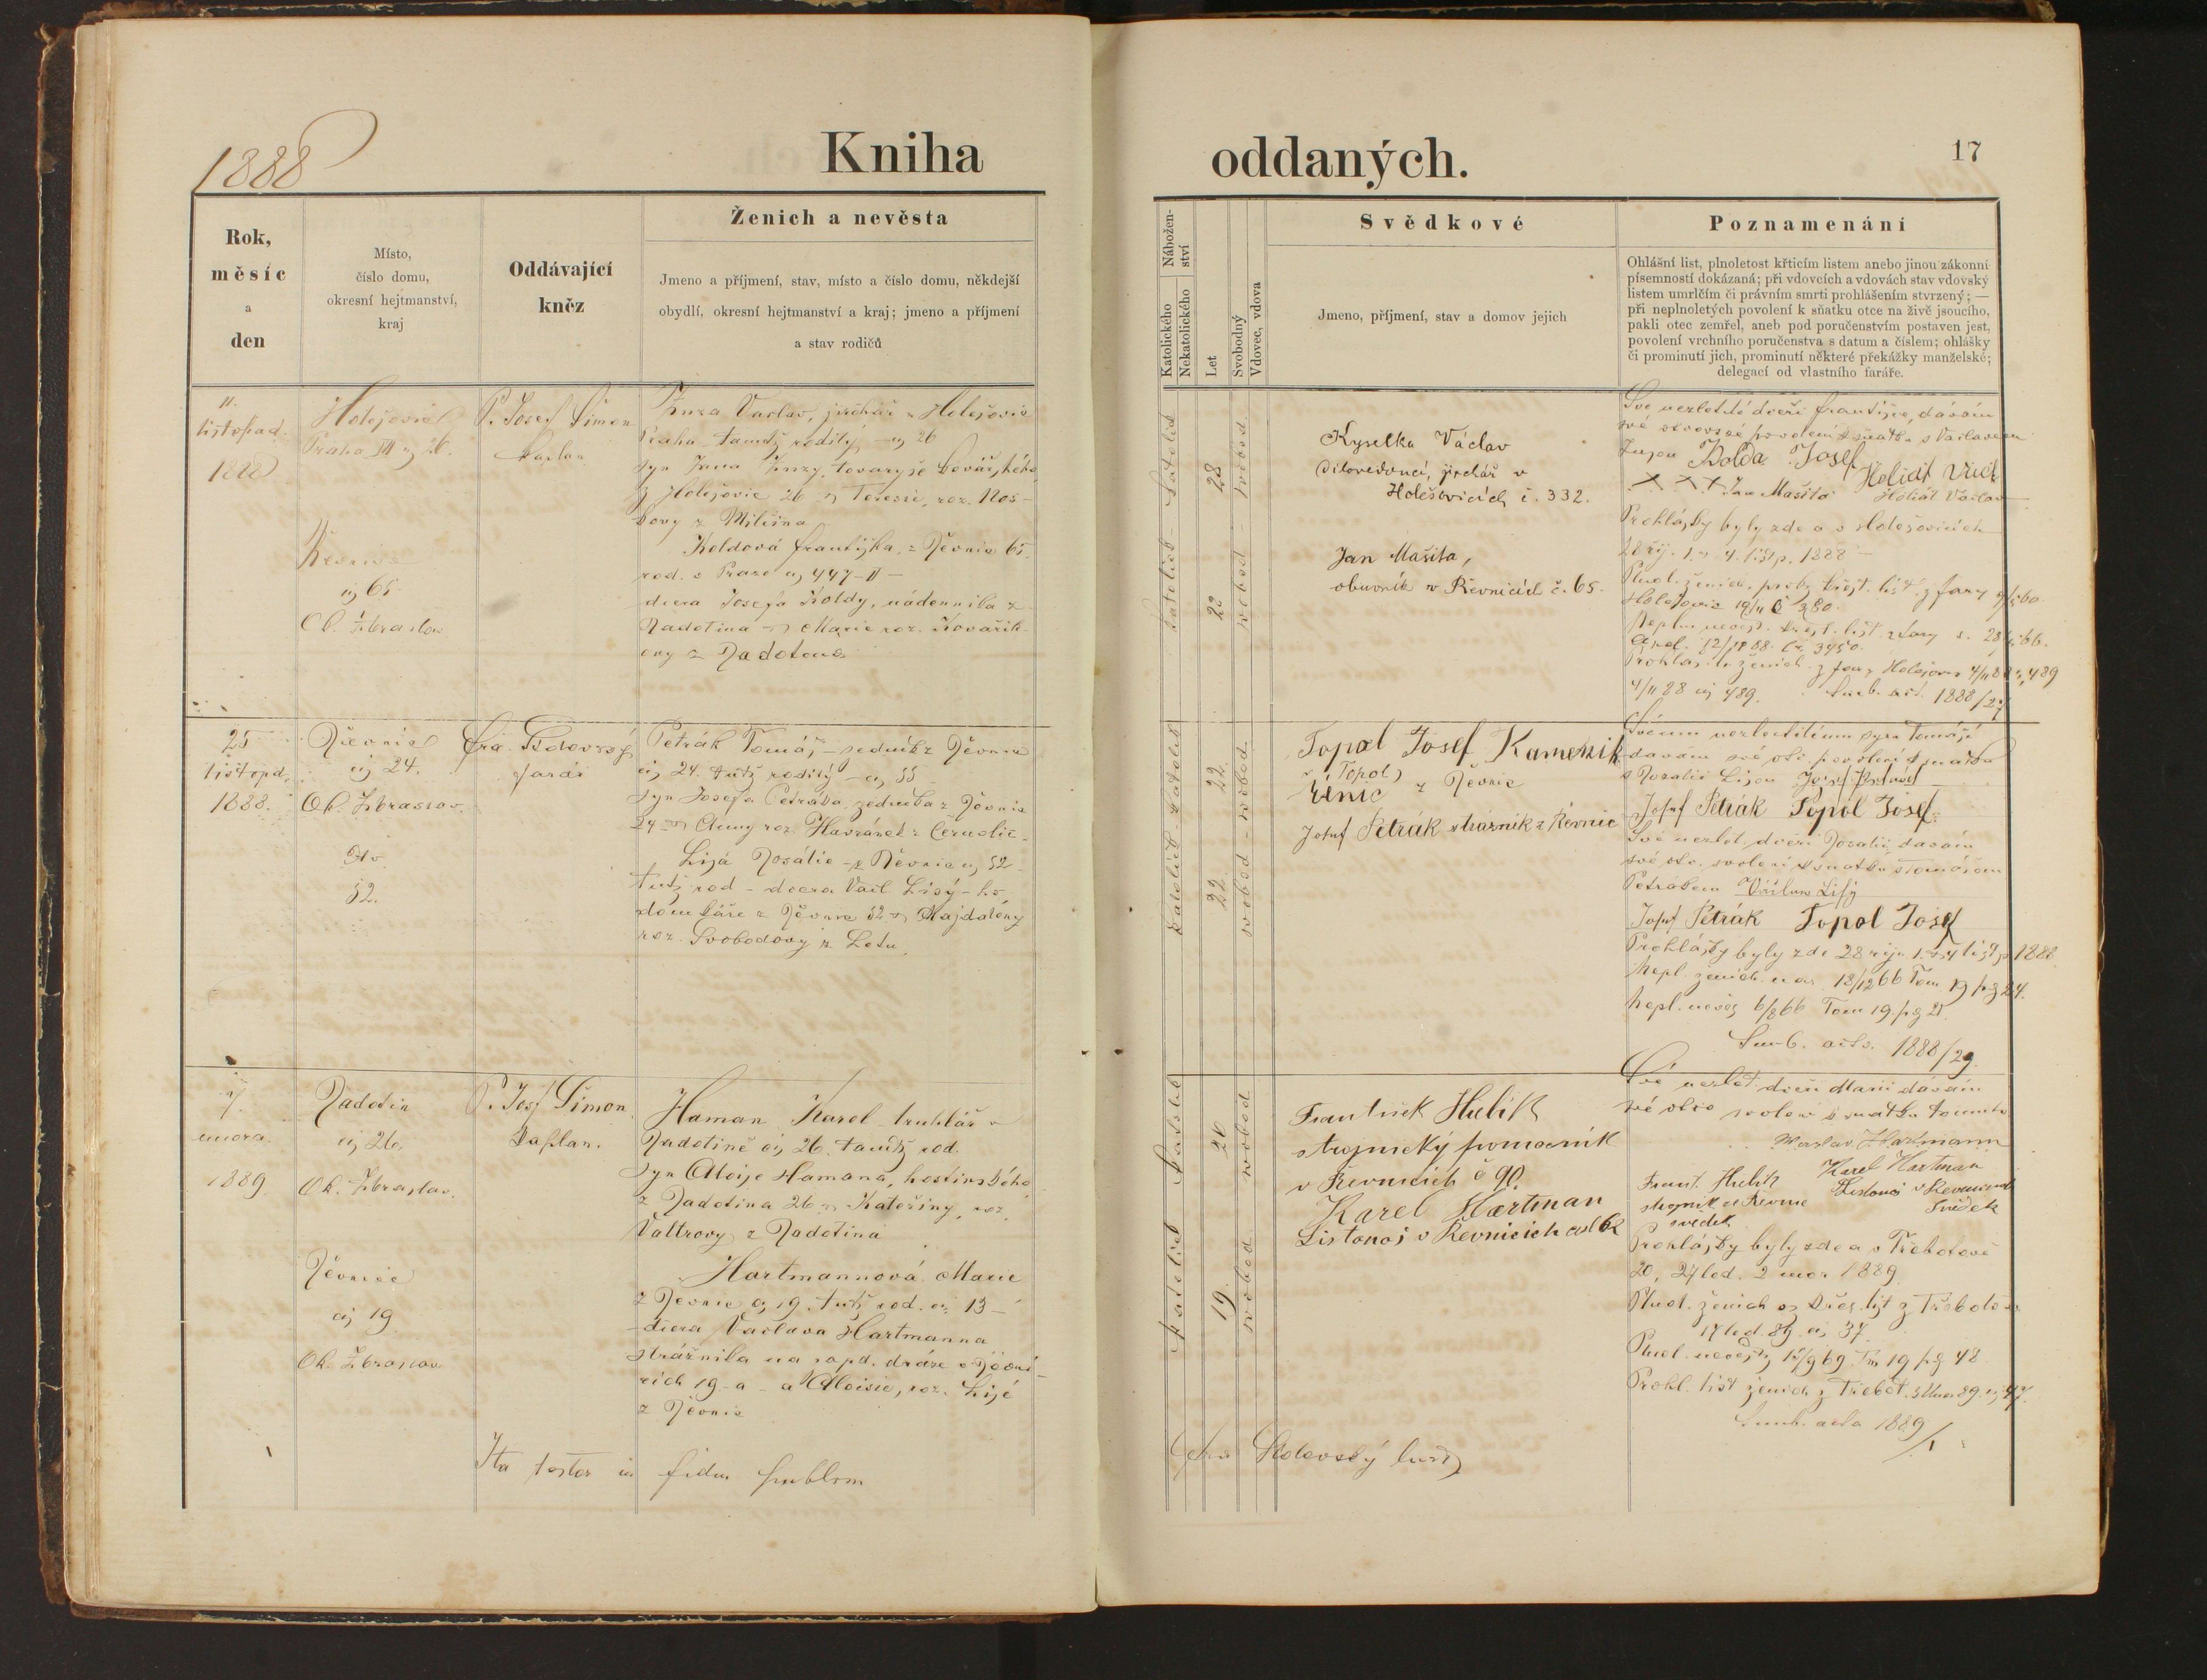 1888
Kniha
oddaných.
17
Rok,
měsíc
a
den
Místo,
číslo domu,
okresní hejtmanství,
kraj
Oddávající
kněz
Ženich a nevěsta
Jmeno a příjmení, stav, místo a číslo domu, někdejší
obydlí, okresní hejtmanství a kraj; jmeno a příjmení
a stav rodičů
Nábožen-
ství
Katolického
Nekatolického
Let
Svobodný
Vdovec, vdova
Svědkové
Jmeno, příjmení, stav a domov jejich
Poznamenání
Ohlášní list, plnoletost křticím listem anebo jinou zákonní
písemností dokázaná; při vdovcích a vdovách stav vdovský
listem umrlčím či právním smrti prohlášením stvrzený; —
při neplnoletých povolení k sňatku otce na živě jsoucího,
pakli otec zemřel, aneb pod poručenstvím postaven jest,
povolení vrchního poručenstva s datum a číslem; ohlášky
či prominutí jich, prominutí některé překážky manželské;
delegací od vlastního faráře.
11.
listopad.
1888
Holešovic
Praha VII čj 26.
Řevnice
čj 65
Ok. Zbraslav
P. Josef Šimon
kaplan
Václav, jirchář z Holešovic
Praha tamtéž rodilý čj 26
syn Jana tovaryše kovářského
z Holešovic 26 a Terezie, roz. Nos-
kovy z Miličína
Koldová Františka, z Řevnic 65.
rod. v Praze čj 447-II
dcera Josefa Koldy, nádenníka z
Radotína a Marie roz. Kovařík-
ovy z Radotína
katolick katolick
28
22
svobod svobod
Kyselka Václav
jirchář v
Holešovicích č. 332.
Jan Mašita,
obuvník v Řevnicích č. 65.
Své nezletilé dceři Františce, dávám
své otcovské povolení k sňatku s Václavem
Kolda Josef
XXX Jan Mašita Holiát Václav
Prohlášky byly zde a v Holešovicích
28 říj. 1. a 4. listp. 1888
Holešovic 380.
4/11 88 čj 489. Sub. act. 1888/27
25
listopd.
1888.
Řevnice
čj 24.
Ok. Zbraslav.
52.
Fra.
farář
Petrák Tomáš – zedník z Řevnic
čj 24. tutéž rodilý – čj 55
syn Josefa Petráka, zedníka z Řevnic
24 a Anny roz. Havránek z Černolic
Lisá Rosálie – z Řevnic čj 52
tutéž rod – dcera Václ. Lisý –
domkáře z Řevnic 52 a Majdalény
roz. Svobodovy z Letu.
katolick katolick
22
22
svobod svobod
Topol Josef Kameník
Topol
z Řevnic
Josef Petrák strážník z Řevnic
Svému nezletilému synu Tomáši
dávám své otc. povolení k sňatku
s Rozalií Lisou Josef Petrák
Josef Petrák Topol Josef
Své nezlet. dceři Rozalii dávám
své otc. svolení k sňatku s Tomášem
Petrákem Václav Lisý
Josef Petrák Topol Josef
Prohlášky byly zde 28 říjn 1. a 4 listp 1888
Nepl. ženich nar. 18/12 66 Tom 19 pg 24.
Nepl. nevěs 6/8 66 Tom 19. pg 21.
Sub. acts. 1888/29.
7.
února.
1889
Radotín
čj 26.
Ok. Zbraslav.
Řevnice
čj 19
Ok. Zbraslav
P. Josf Šimon
kaplan.
Haman Karel truhlář v
Radotíně čj 26. tamtéž rod.
syn Aloise Hamana, hostinského
z Radotína 26 a Kateřiny, roz.
Valtrovy z Radotína
Hartmannová Marie
z Řevnic čj 19. tutéž rod. čj 13 –
dcera Václava Hartmanna
strážníka na zapd. dráze v Řevni-
cích 19 – a Aloisie, roz. Lisé
z Řevnic
katolick katolick
24
19.
svobod svobod
František Hulík
strojnický pomocník
v Řevnicích č 90.
Karel Hartman
Listonoš v Řevnicích čsl 62
Své nezlet. dceři Marii dávám
své otco svolení k sňatku tomuto
Václav Hartmann
Frant. Hulík Karel Hartman
strojník v Řevnic Listonoš v Řevnicích
svědek Svědek
Prohlášky byly zde a v Třebotově
20, 27 led. 2 unor 1889.
17 led. 89 čj 37.
Plnol. nevěsty 15/9 69. Tm 19 pg 48
Prohl. list ženich z Třebot. 3 Unor 89. čj 47.
Sub. acta 1889/1
Ita testor in fidem publcm